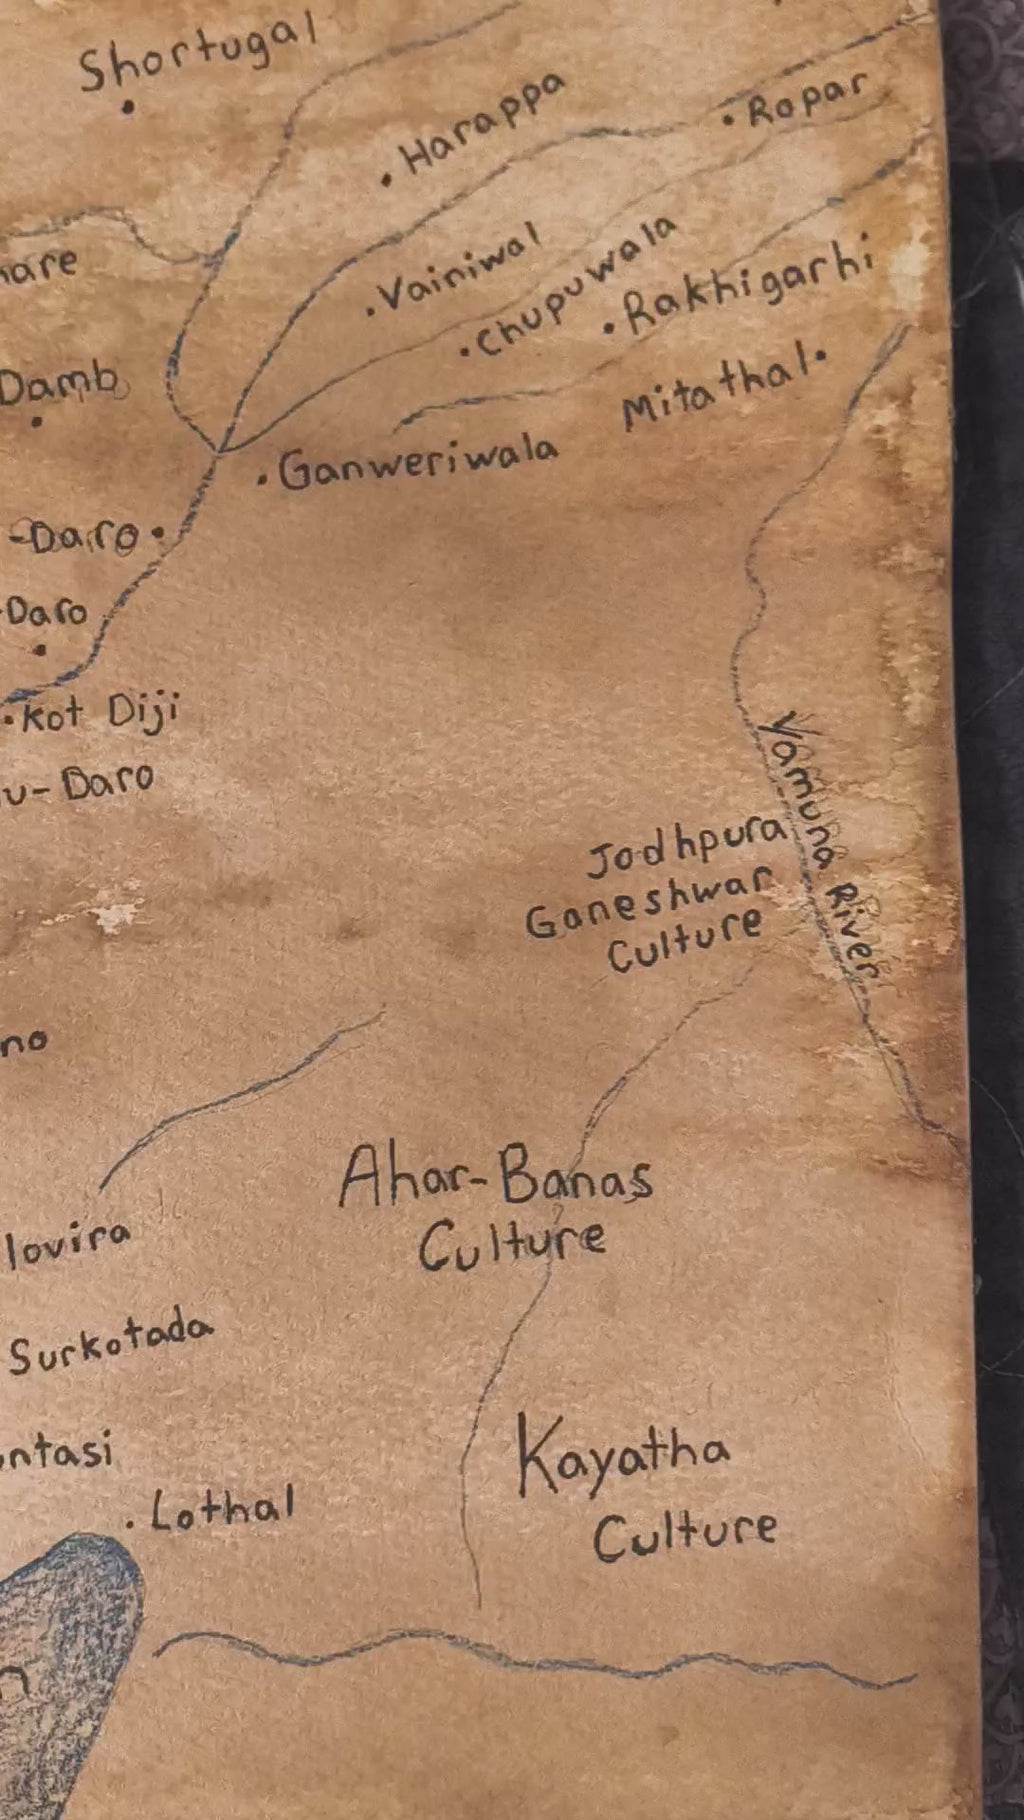 Shortugal
Harappa
Ropar
Vainiwal
Chupuwala
Rakhigarhi
Mitathal
Ganweriwala
nare
Damb
-Daro
-Daro
Kot Diji
u-Daro
Yamuna River
Jodhpura
Ganeshwar
Culture
no
Ahar-Banas
Culture
lovira
Surkotada
ntasi
Lothal
Kayatha
Culture
n